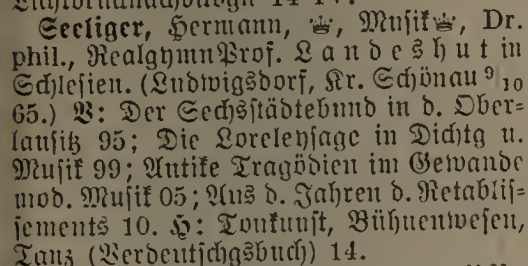 Seeliger, Hermann, ♕, Musik♕, Dr.
phil., RealgymnProf. Landeshut in
Schlesien. (Ludwigsdorf, Kr. Schönau 9/10
65.) V: Der Sechsstädtebund in d. Ober-
lausitz 95; Die Loreleysage in Dichtg u.
Musik 99; Antike Tragödien im Gewande
mod. Musik 05; Aus d. Jahren d. Retablis-
sements 10. H: Tonkunst, Bühnenwesen,
Tanz (Verdeutschgsbuch) 14.